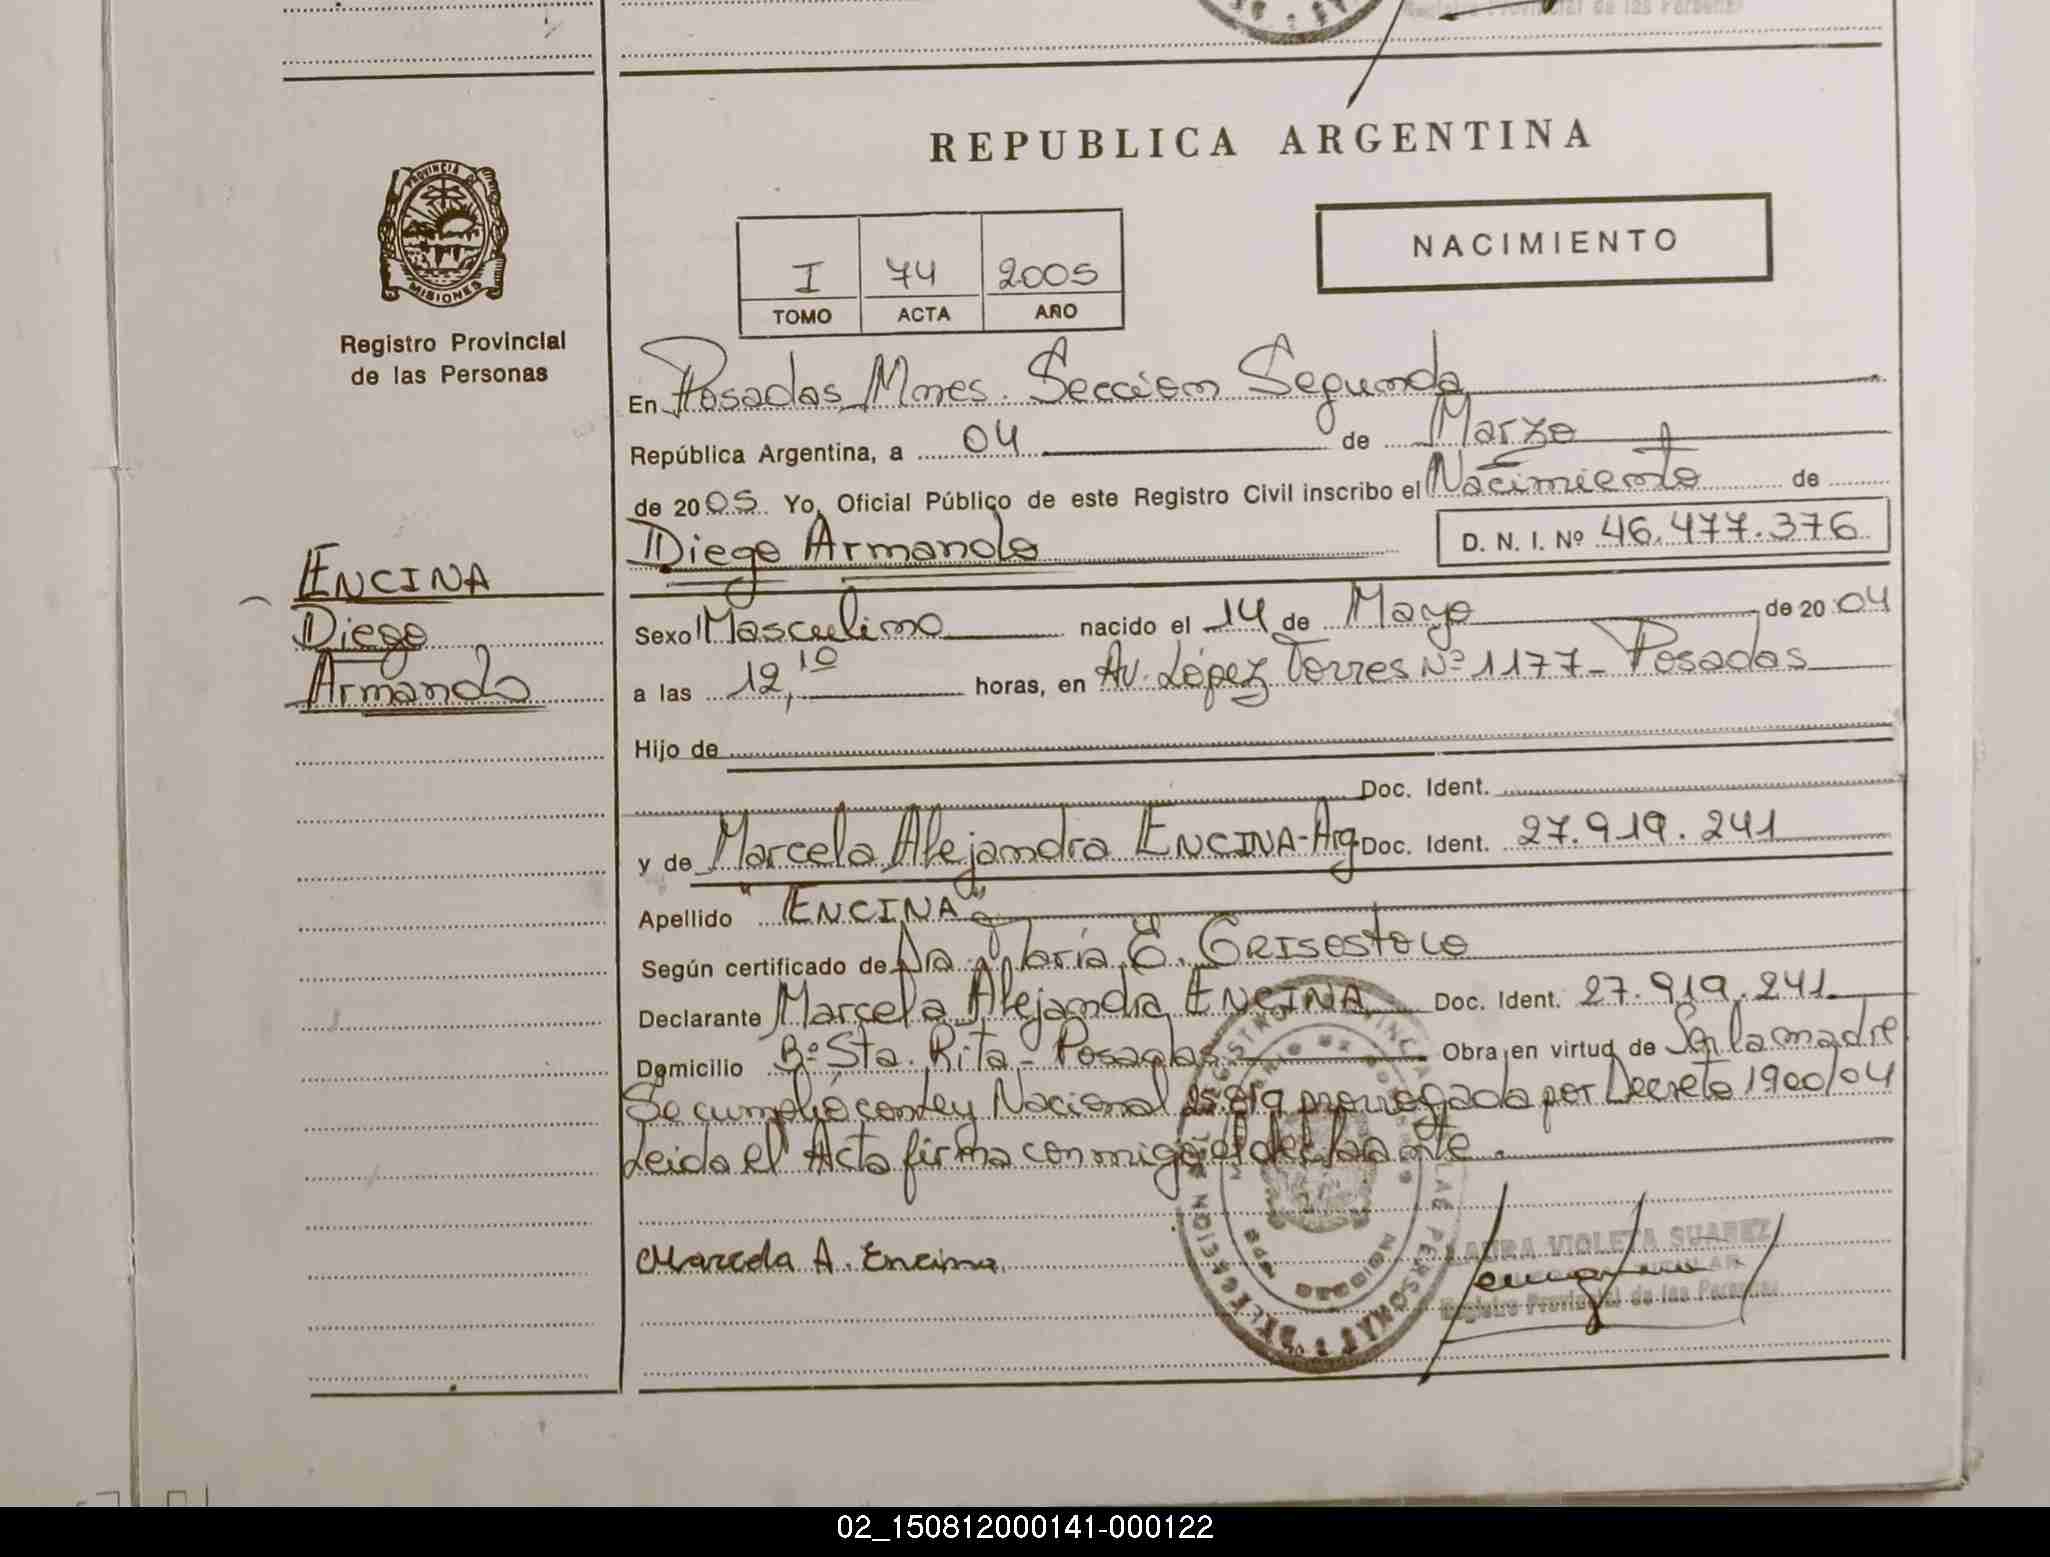 REPUBLICA ARGENTINA
PROVINCIA DE
MISIONES
Registro Provincial
de las Personas
NACIMIENTO
I 74 2005
TOMO ACTA AÑO
En Posadas Mnes. Sección Segunda
República Argentina, a 04 de Marzo
de 2005 Yo, Oficial Público de este Registro Civil inscribo el Nacimiento de
Diego Armando D. N. I. Nº 46.477.376
ENCINA
Diego
Armando
Sexo Masculino nacido el 14 de Mayo de 2004
a las 12,10 horas, en Av. López Torres Nº 1177- Posadas
Hijo de
Doc. Ident.
y de Marcela Alejandra ENCINA-Arg Doc. Ident. 27.919.241
Apellido "ENCINA"
Según certificado de Dra. María E.
Declarante Marcela Alejandra ENCINA Doc. Ident. 27.919.241
Domicilio Bº Sta. Rita - Posadas Obra en virtud de Ser la madre
Se cumplió con Ley Nacional 25.819 prorrogada por Decreto 1900/04
Leida el Acta firma conmigo el declarante.
Marcela A. Encina
LAURA VIOLETA SUAREZ
Registro Provincial de las Personas
02_150812000141-000122